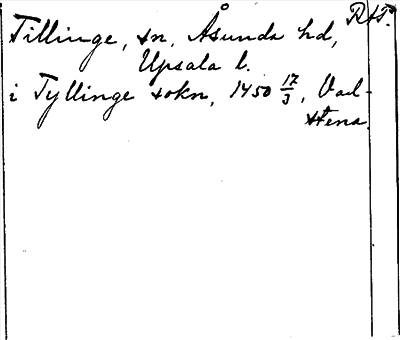 Tillinge, sn, Åsunda hd, RAP.
Upsala l.
i Tyllinge sokn, 1450 17/3, Vad-
stena.